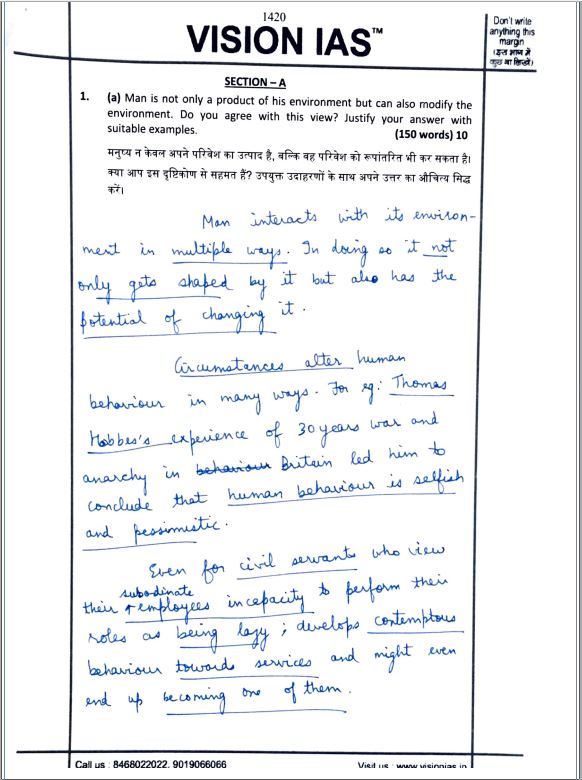 1420
VISION IAS™
Don't write
anything this
margin
(इस भाग में
कुछ ना लिखें)
SECTION – A
1. (a) Man is not only a product of his environment but can also modify the
environment. Do you agree with this view? Justify your answer with
suitable examples. (150 words) 10
मनुष्य न केवल अपने परिवेश का उत्पाद है, बल्कि वह परिवेश को रूपांतरित भी कर सकता है।
क्या आप इस दृष्टिकोण से सहमत हैं? उपयुक्त उदाहरणों के साथ अपने उत्तर का औचित्य सिद्ध
करें।
Man interacts with its environ-
ment in multiple ways. In doing so it not
only gets shaped by it but also has the
potential of changing it.
Circumstances alter human
behaviour in many ways. For eg: Thomas
Hobbes's experience of 30 years war and
anarchy in behaviour Britain led him to
conclude that human behaviour is selfish
and pessimistic.
Even for civil servants who view
their subodinate employees incapacity to perform their
roles as being lazy ; develops contemptous
behaviour towards services and might even
end up becoming one of them.
Call us : 8468022022, 9019066066 Visit us : www.visionias.in